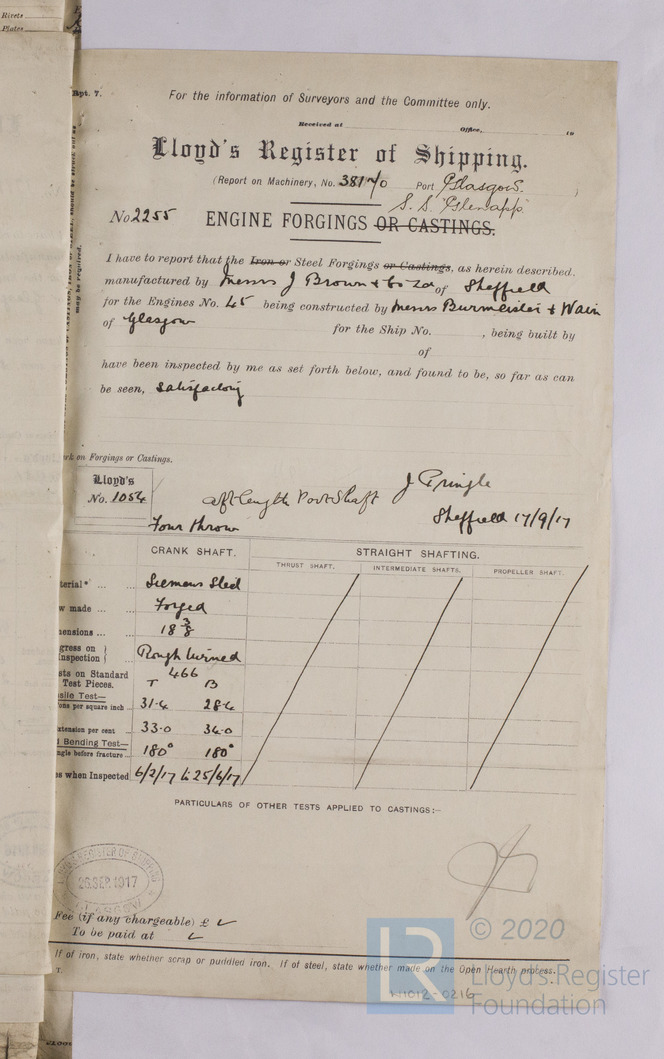 Rivets
Plates
Rpt. 7.
For the information of Surveyors and the Committee only.
Received at Office, 19
Lloyd's Register of Shipping.
(Report on Machinery, No. 38170 Port Glasgow. )
S. S. "Glenapp"
No 2255
ENGINE FORGINGS OR CASTINGS.
I have to report that the Iron or Steel Forgings or Castings, as herein described,
manufactured by Messrs J Brown & Co Ld of Sheffield
for the Engines No. 45 being constructed by Messrs Burmeister & Wain
of Glasgow for the Ship No. , being built by
of
have been inspected by me as set forth below, and found to be, so far as can
be seen, satisfactory
may be required.
rk on Forgings or Castings.
Lloyd's
No. 1054
aft length Port Shaft
J Pringle
Sheffield 17/9/17
Four throw
CRANK SHAFT.
STRAIGHT SHAFTING.
THRUST SHAFT.
INTERMEDIATE SHAFTS.
PROPELLER SHAFT.
terial* ... ... Siemens Steel
w made ... ... Forged
ensions ... ... 18 3/8
gress on }
Inspection } Rough turned
sts on Standard 466
Test Pieces. T B
sile Test—
ons per square inch 31.4 28.4
xtension per cent 33.0 34.0
d Bending Test—
ngle before fracture 180° 180°
s when Inspected 6/2/17 to 25/6/17
PARTICULARS OF OTHER TESTS APPLIED TO CASTINGS:—
LLOYD'S REGISTER OF SHIPPING
26 SEP. 1917
GLASGOW
Fee (if any chargeable) £
To be paid at
If of iron, state whether scrap or puddled iron. If of steel, state whether made on the Open Hearth process.
T.
W1012-0216
LR
© 2020
Lloyd's Register
Foundation